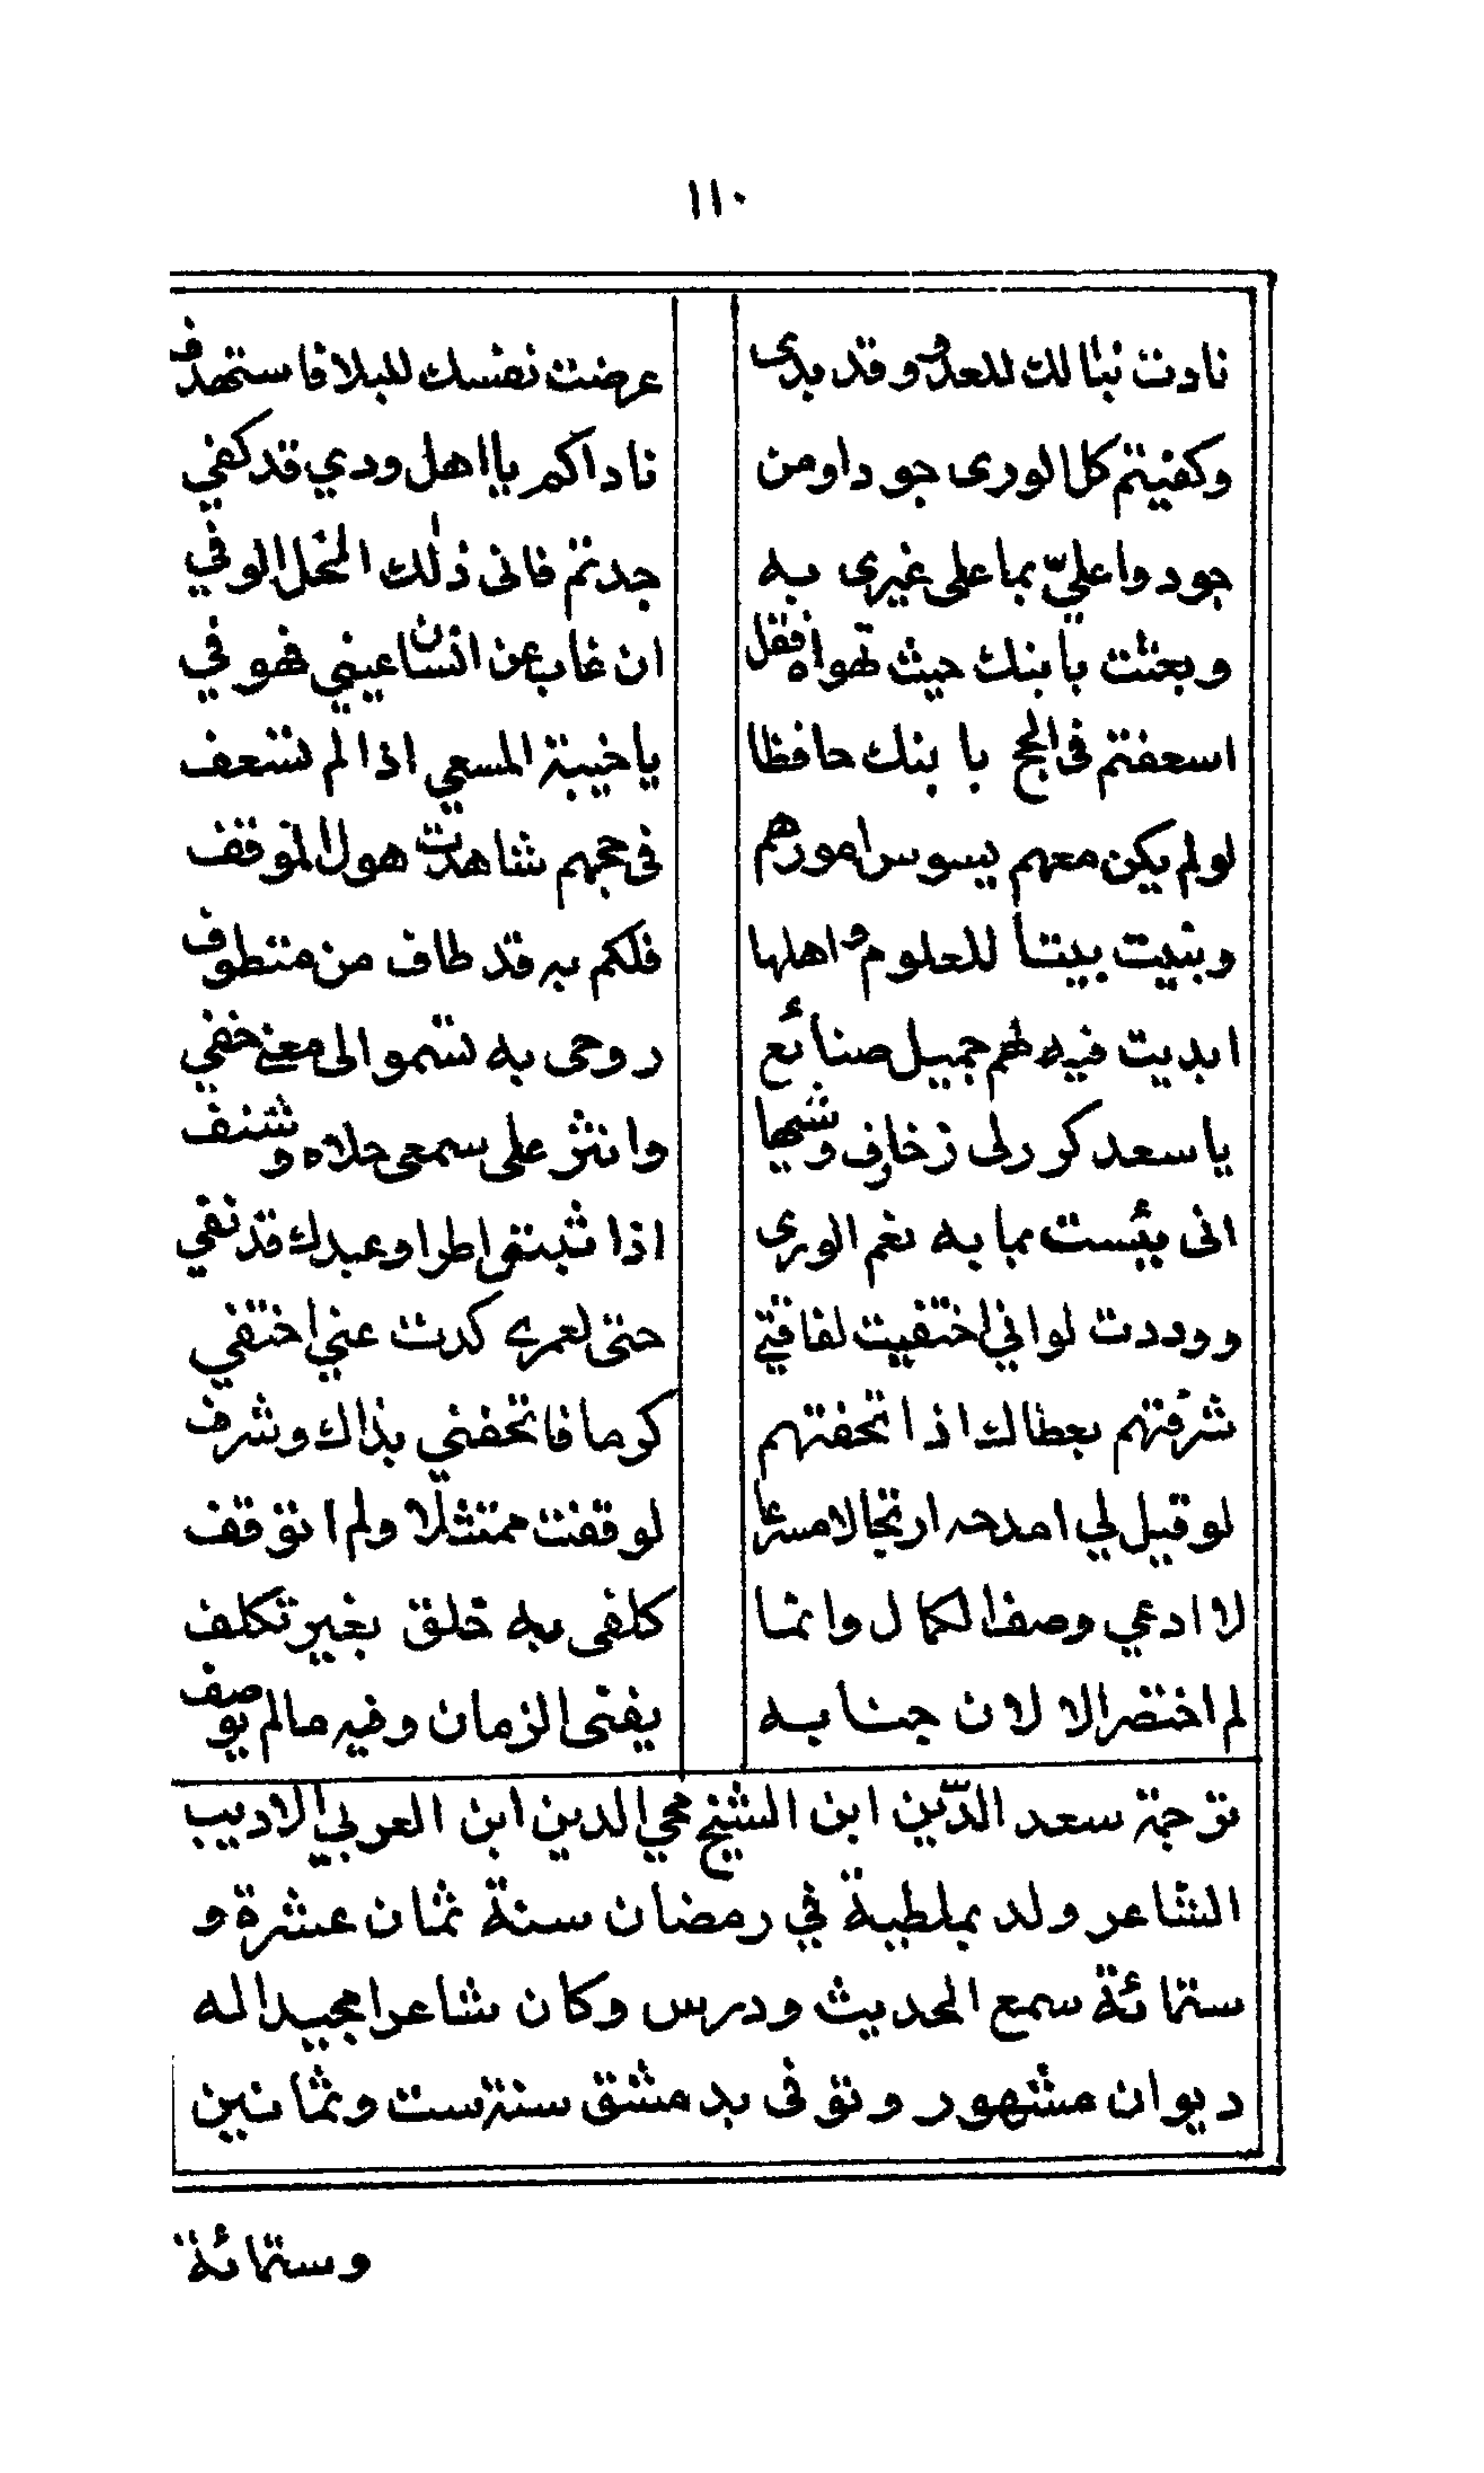 ١١٠
نادت نبالك للعدو وقد بدى عرضت نفسك للبلا فاستهدف
وكفيتم كل الورى جودا ومن ناداكم يا اهل ودي قد كفي
جودوا عليّ بما على غيرى به جدتم فانى ذلك الخل الوفي
وبعثت بابنك حيث تهواه فقل ان غاب عن انسان عيني فهو في
اسعفتم فى الحج بابنك حافظا يا خيبة المسعى اذا لم تسعف
لو لم يكن معهم يسوس امورهم فى حجهم شاهدت هول الموقف
وبنيت بيتا للعلوم واهلها فلكم به قد طاف من متطوف
ابديت فيه لهم جميل صنائع روحى به تسمو الى معنى خفي
يا سعد كرر لى زخارف وشيها وانثر على سمعى حلاه وشنف
انى يئست بما به نعم الورى اذا ثبت طرا وعبدك قد نفي
ووددت لو اني اختفيت لفاقتي حتى لعمرى كدت عني اختفي
شرفتهم بعطالك اذ اتحفتهم كرما فاتحفني بذاك وشرف
لو قيل لي امدحه ارتجالا مسرعا لوقفت ممتثلا ولم اتوقف
لا ادعي وصف الكمال وانما كلفى به خلق بغير تكلف
لم اختصر الا لان جنابه يفنى الزمان وفيه مالم يوصف
ترجمة سعد الدّين ابن الشيخ محي الدين ابن العربي الاديب
الشاعر ولد بملطية في رمضان سنة ثمان عشرة و
ستمائة سمع الحديث ودرس وكان شاعرا مجيدا له
ديوان مشهور وتوفى بدمشق سنة ست وثمانين
وستمائة